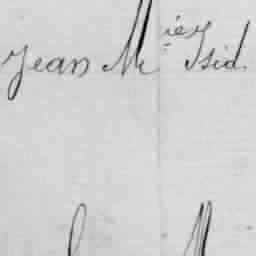 Jean Mie Isid.